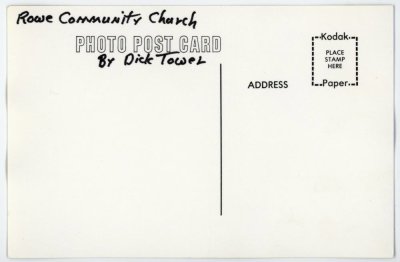 Rowe Community Church
PHOTO POST CARD
By Dick Tower
ADDRESS
Kodak
PLACE
STAMP
HERE
Paper